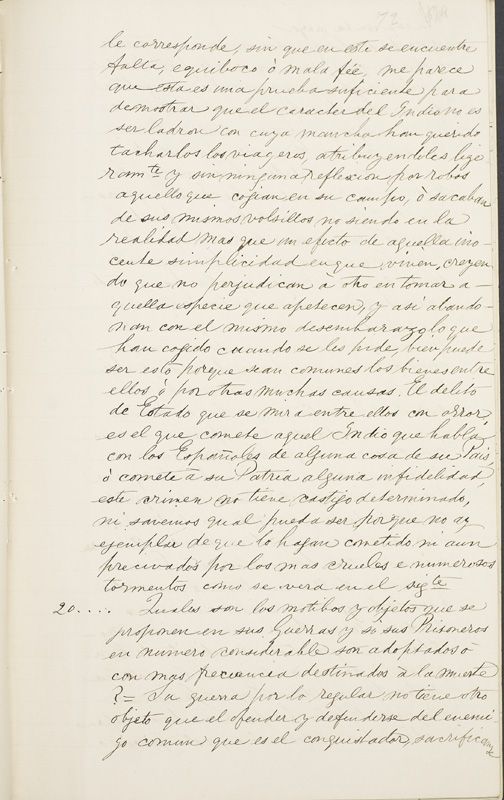 72
le corresponde, sin que en esto se encuentre
falta, equiboco ò mala fée, me parece
que esta es una prueba suficiente para
demostrar que el caracter del Indio no es
ser ladron con cuya mancha han querido
tacharlos los viageros, atribuyendoles lige
ramte y sin ninguna reflexion por robos
aquello que cojian en su campo, ò sacaban
de sus mismos volsillos no siendo en la
realidad mas que un efecto de aquella ino-
cente simplicidad en que viven, creyen
do que no perjudican a otro en tomar a-
quella especie que apetecen, y asi abando-
nan con el mismo desembarazo lo que
han cojido cuando se les pide, bien puede
ser esto porque sean comunes los bienes entre
ellos ò por otras muchas causas. El delito
de Estado que se mira entre ellos con orror,
es el que comete aquel Indio que habla
con los Españoles de alguna cosa de su Pais
ò comete à su Patria alguna infidelidad,
este crimen no tiene castigo determinado,
ni savemos qual pueda ser porque no ay
ejemplar de que lo hayan cometido ni aun
precivados por los mas crueles e numerosos
tormentos como se vera en el sigte
20.... Quales son los motibos y objetos que se
proponen en sus Guerras y si sus Prisioneros
en numero considerable son adoptados ò
con mas frecuencia destinados à la muerte
?= Su guerra por lo regular no tiene otro
objeto que el ofender y defenderse del enemi
go comun que es el conquistador,